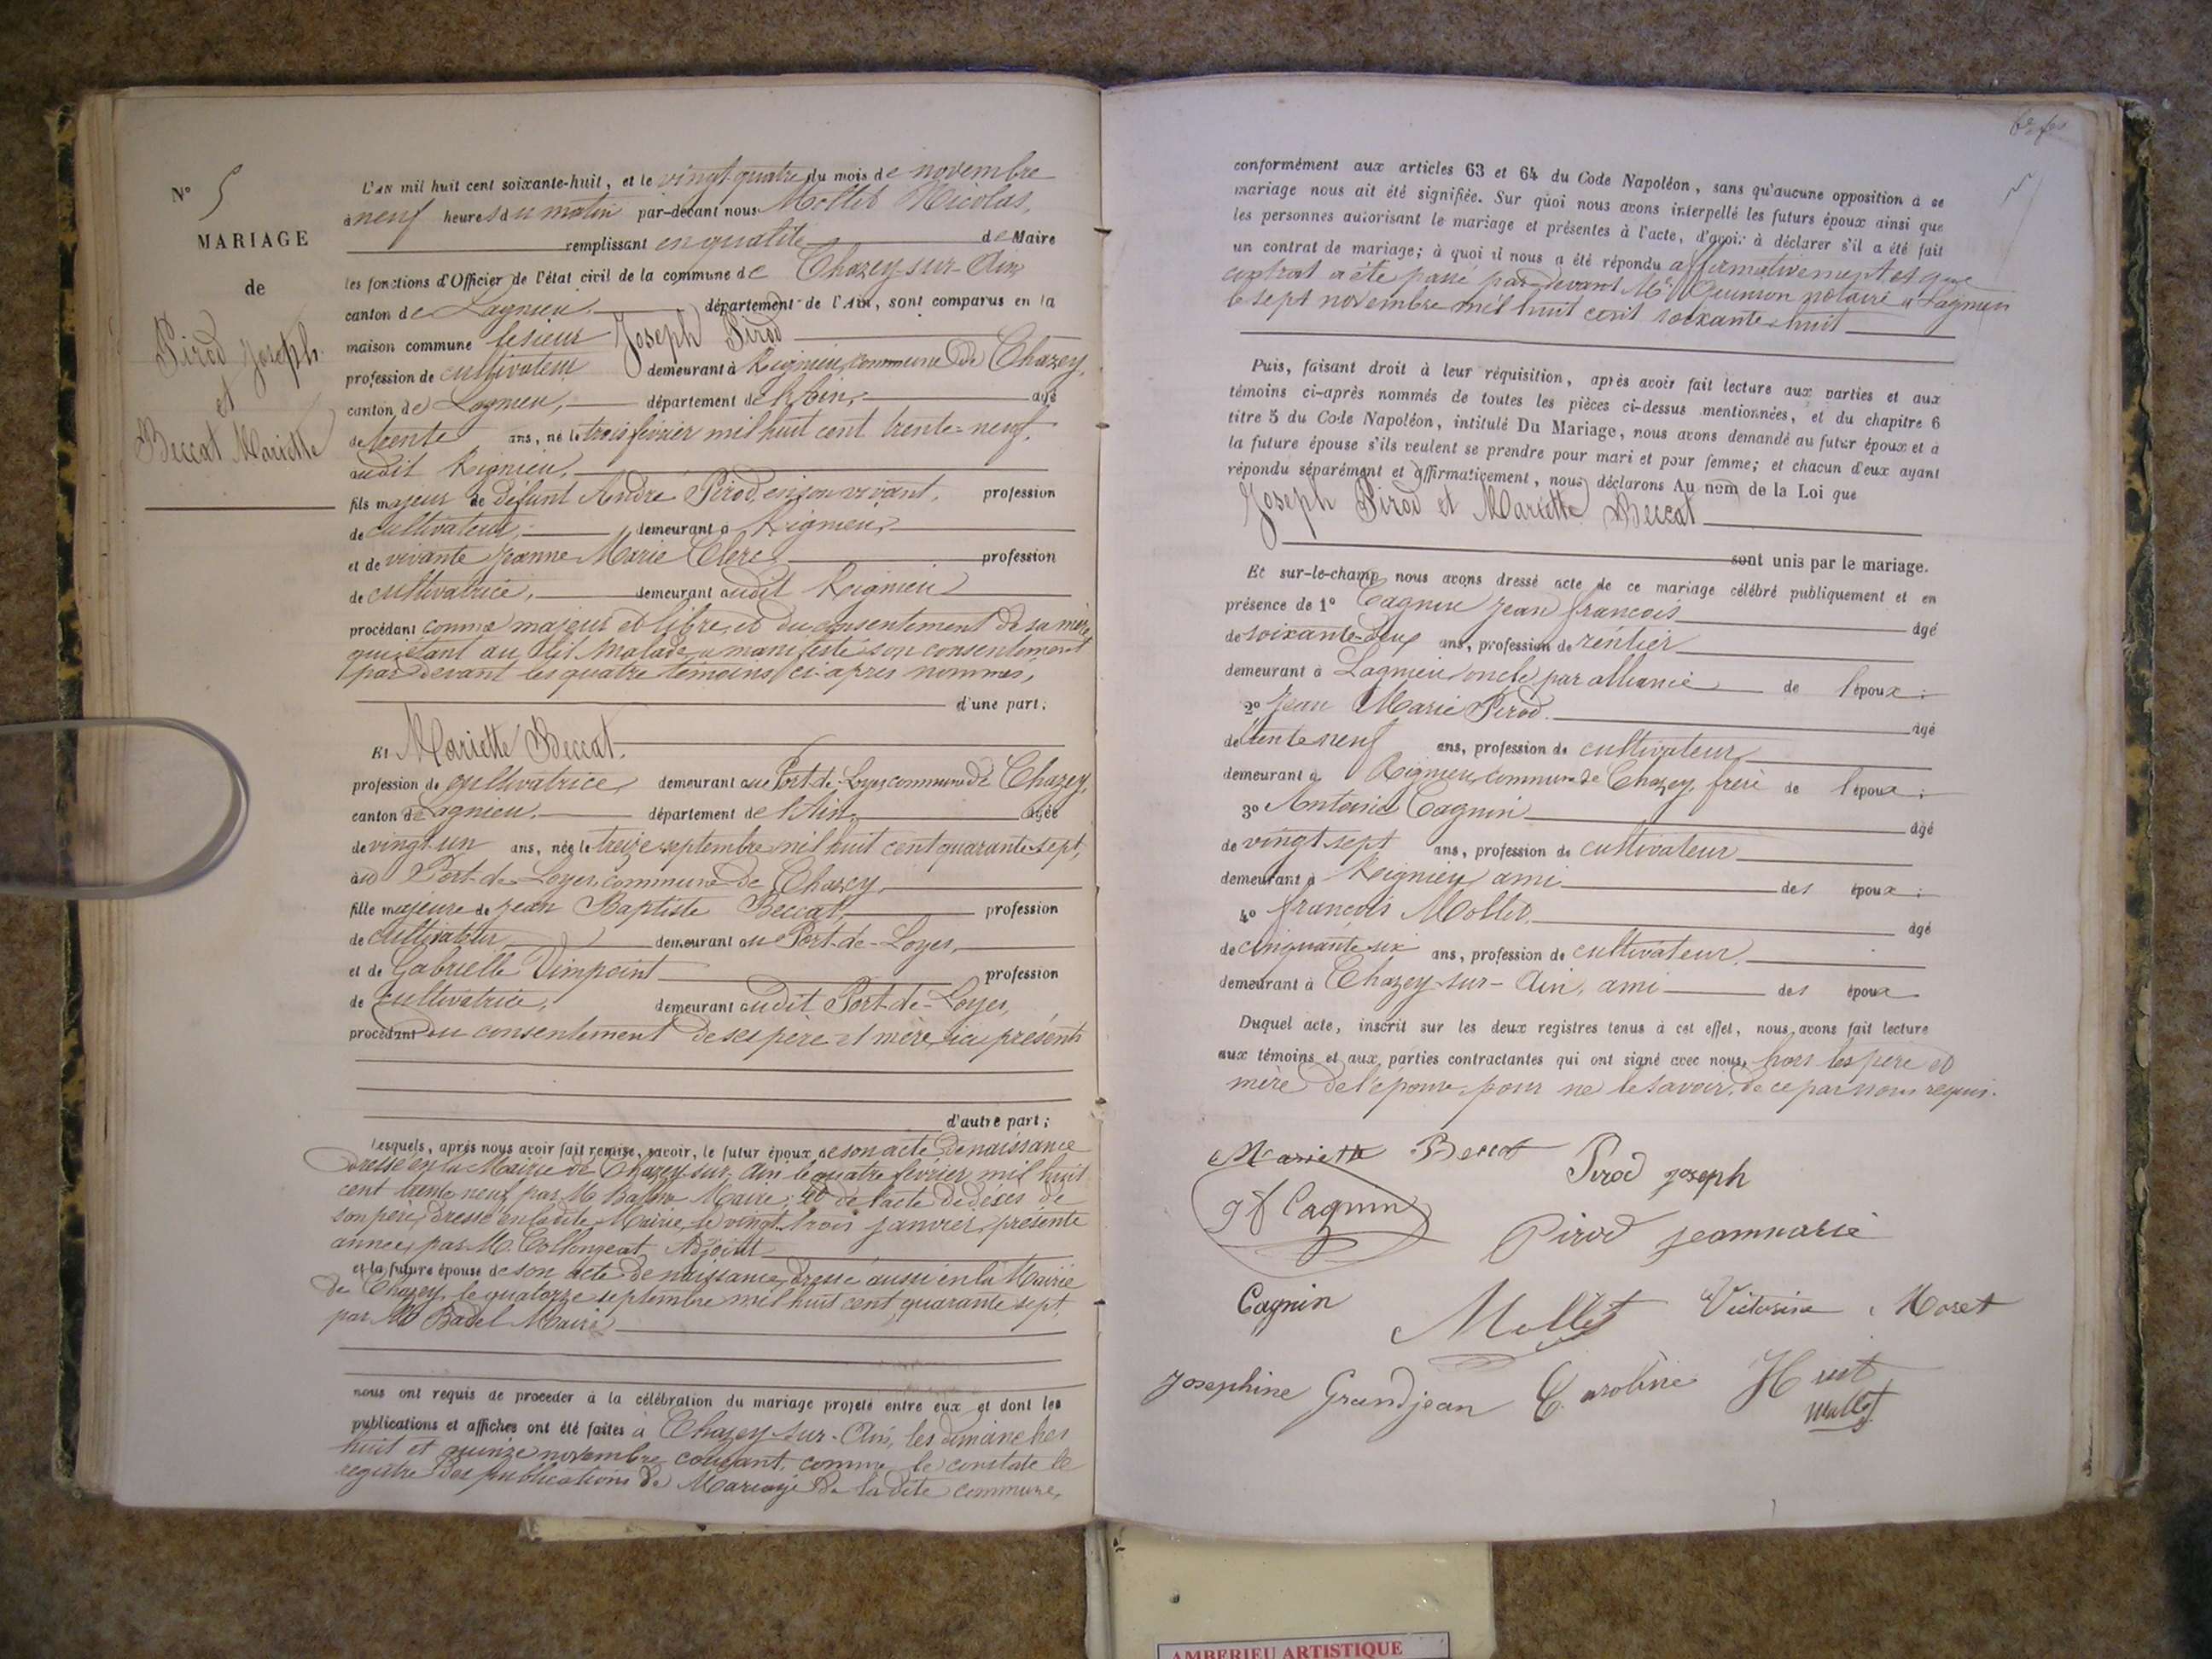 N° 5
MARIAGE
de
Pirod Joseph
et
Beccat Mariette
L'an mil huit cent soixante-huit, et le vingt-quatre du mois de novembre
à neuf heures du matin par-devant nous Mollet Nicolas,
remplissant en qualité de Maire
les fonctions d'Officier de l'état civil de la commune de Chazey-sur-Ain
canton de Lagnieu, département de l'Ain, sont comparus en la
maison commune le sieur Joseph Pirod
profession de cultivateur demeurant à Rignieu, commune de Chazey,
canton de Lagnieu, département de l'Ain, agé
de trente ans, né le trois février mil huit cent trente-neuf,
audit Rignieu,
fils majeur de défunt André Pirod, en son vivant, profession
de cultivateur, demeurant à Rignieu,
et de vivante Jeanne Marie Clerc profession
de cultivatrice, demeurant audit Rignieu
procédant comme majeur et libre, et du consentement de sa mère,
qui étant au lit malade, a manifesté son consentement
par devant les quatre témoins ci-après nommés,
d'une part;
Et Mariette Beccat.
profession de cultivatrice, demeurant au Port-de-Loyes commune de Chazey,
canton de Lagnieu, département de l'Ain, agée
de vingt-un ans, née le treize septembre mil huit cent quarante-sept,
au Port-de-Loyes, commune de Chazey,
fille majeure de Jean Baptiste Beccat, profession
de cultivateur, demeurant au Port-de-Loyes,
et de Gabrielle Dimpoint profession
de cultivatrice, demeurant audit Port-de-Loyes,
procédant du consentement de ses père et mère, ici présents
d'autre part;
Lesquels, après nous avoir fait remise, savoir, le futur époux de son acte de naissance
dressé en la Mairie de Chazey-sur-Ain le quatre février mil huit
cent trente-neuf par M. Maire; 2° de l'acte de décès de
son père, dressé en ladite Mairie, le vingt-trois janvier, présente
année, par M. Collongeat, Adjoint
et la future épouse de son acte de naissance, dressé aussi en la Mairie
de Chazey, le quatorze septembre mil huit cent quarante sept,
par M. Badel Maire
nous ont requis de procéder à la célébration du mariage projeté entre eux et dont les
publications et affiches ont été faites à Chazey-sur-Ain, les dimanches
huit et quinze novembre courant, comme le constate le
registre des publications de Mariage de la dite commune,
conformément aux articles 63 et 64 du Code Napoléon, sans qu'aucune opposition à ce
mariage nous ait été signifiée. Sur quoi nous avons interpellé les futurs époux ainsi que
les personnes autorisant le mariage et présentes à l'acte, d'avoir à déclarer s'il a été fait
un contrat de mariage; à quoi il nous a été répondu affirmativement et que
contrat a été passé par-devant Me Quinson notaire à Lagnieu
le sept novembre mil huit cent soixante-huit
Puis, faisant droit à leur réquisition, après avoir fait lecture aux parties et aux
témoins ci-après nommés de toutes les pièces ci-dessus mentionnées, et du chapitre 6
titre 5 du Code Napoléon, intitulé Du Mariage, nous avons demandé au futur époux et à
la future épouse s'ils veulent se prendre pour mari et pour femme; et chacun d'eux ayant
répondu séparément et affirmativement, nous déclarons Au nom de la Loi que
Joseph Pirod et Mariette Beccat
sont unis par le mariage.
Et sur-le-champ nous avons dressé acte de ce mariage célébré publiquement et en
présence de 1° Cagnin Jean françois agé
de soixante-deux ans, profession de rentier
demeurant à Lagnieu, oncle par alliance de l'époux;
2° Jean Marie Pirod. agé
de trente neuf ans, profession de cultivateur
demeurant à Rignieu, commune de Chazey, frère de l'époux;
3° Antoine Cagnin agé
de vingt-sept ans, profession de cultivateur
demeurant à Rignieu, ami des époux;
4° françois Mollet agé
de cinquante six ans, profession de cultivateur,
demeurant à Chazey-sur-Ain, ami des époux
Duquel acte, inscrit sur les deux registres tenus à cet effet, nous avons fait lecture
aux témoins et aux parties contractantes qui ont signé avec nous, hors les père et
mère de l'épouse, pour ne le savoir, de ce par nous requis.
Mariette Beccat Pirod Joseph
J f Cagnin
Pirod jeanmarie
Cagnin Mollet Victorine Moret
Josephine Grandjean Caroline Huet
Mollet
AMBERIEU ARTISTIQUE